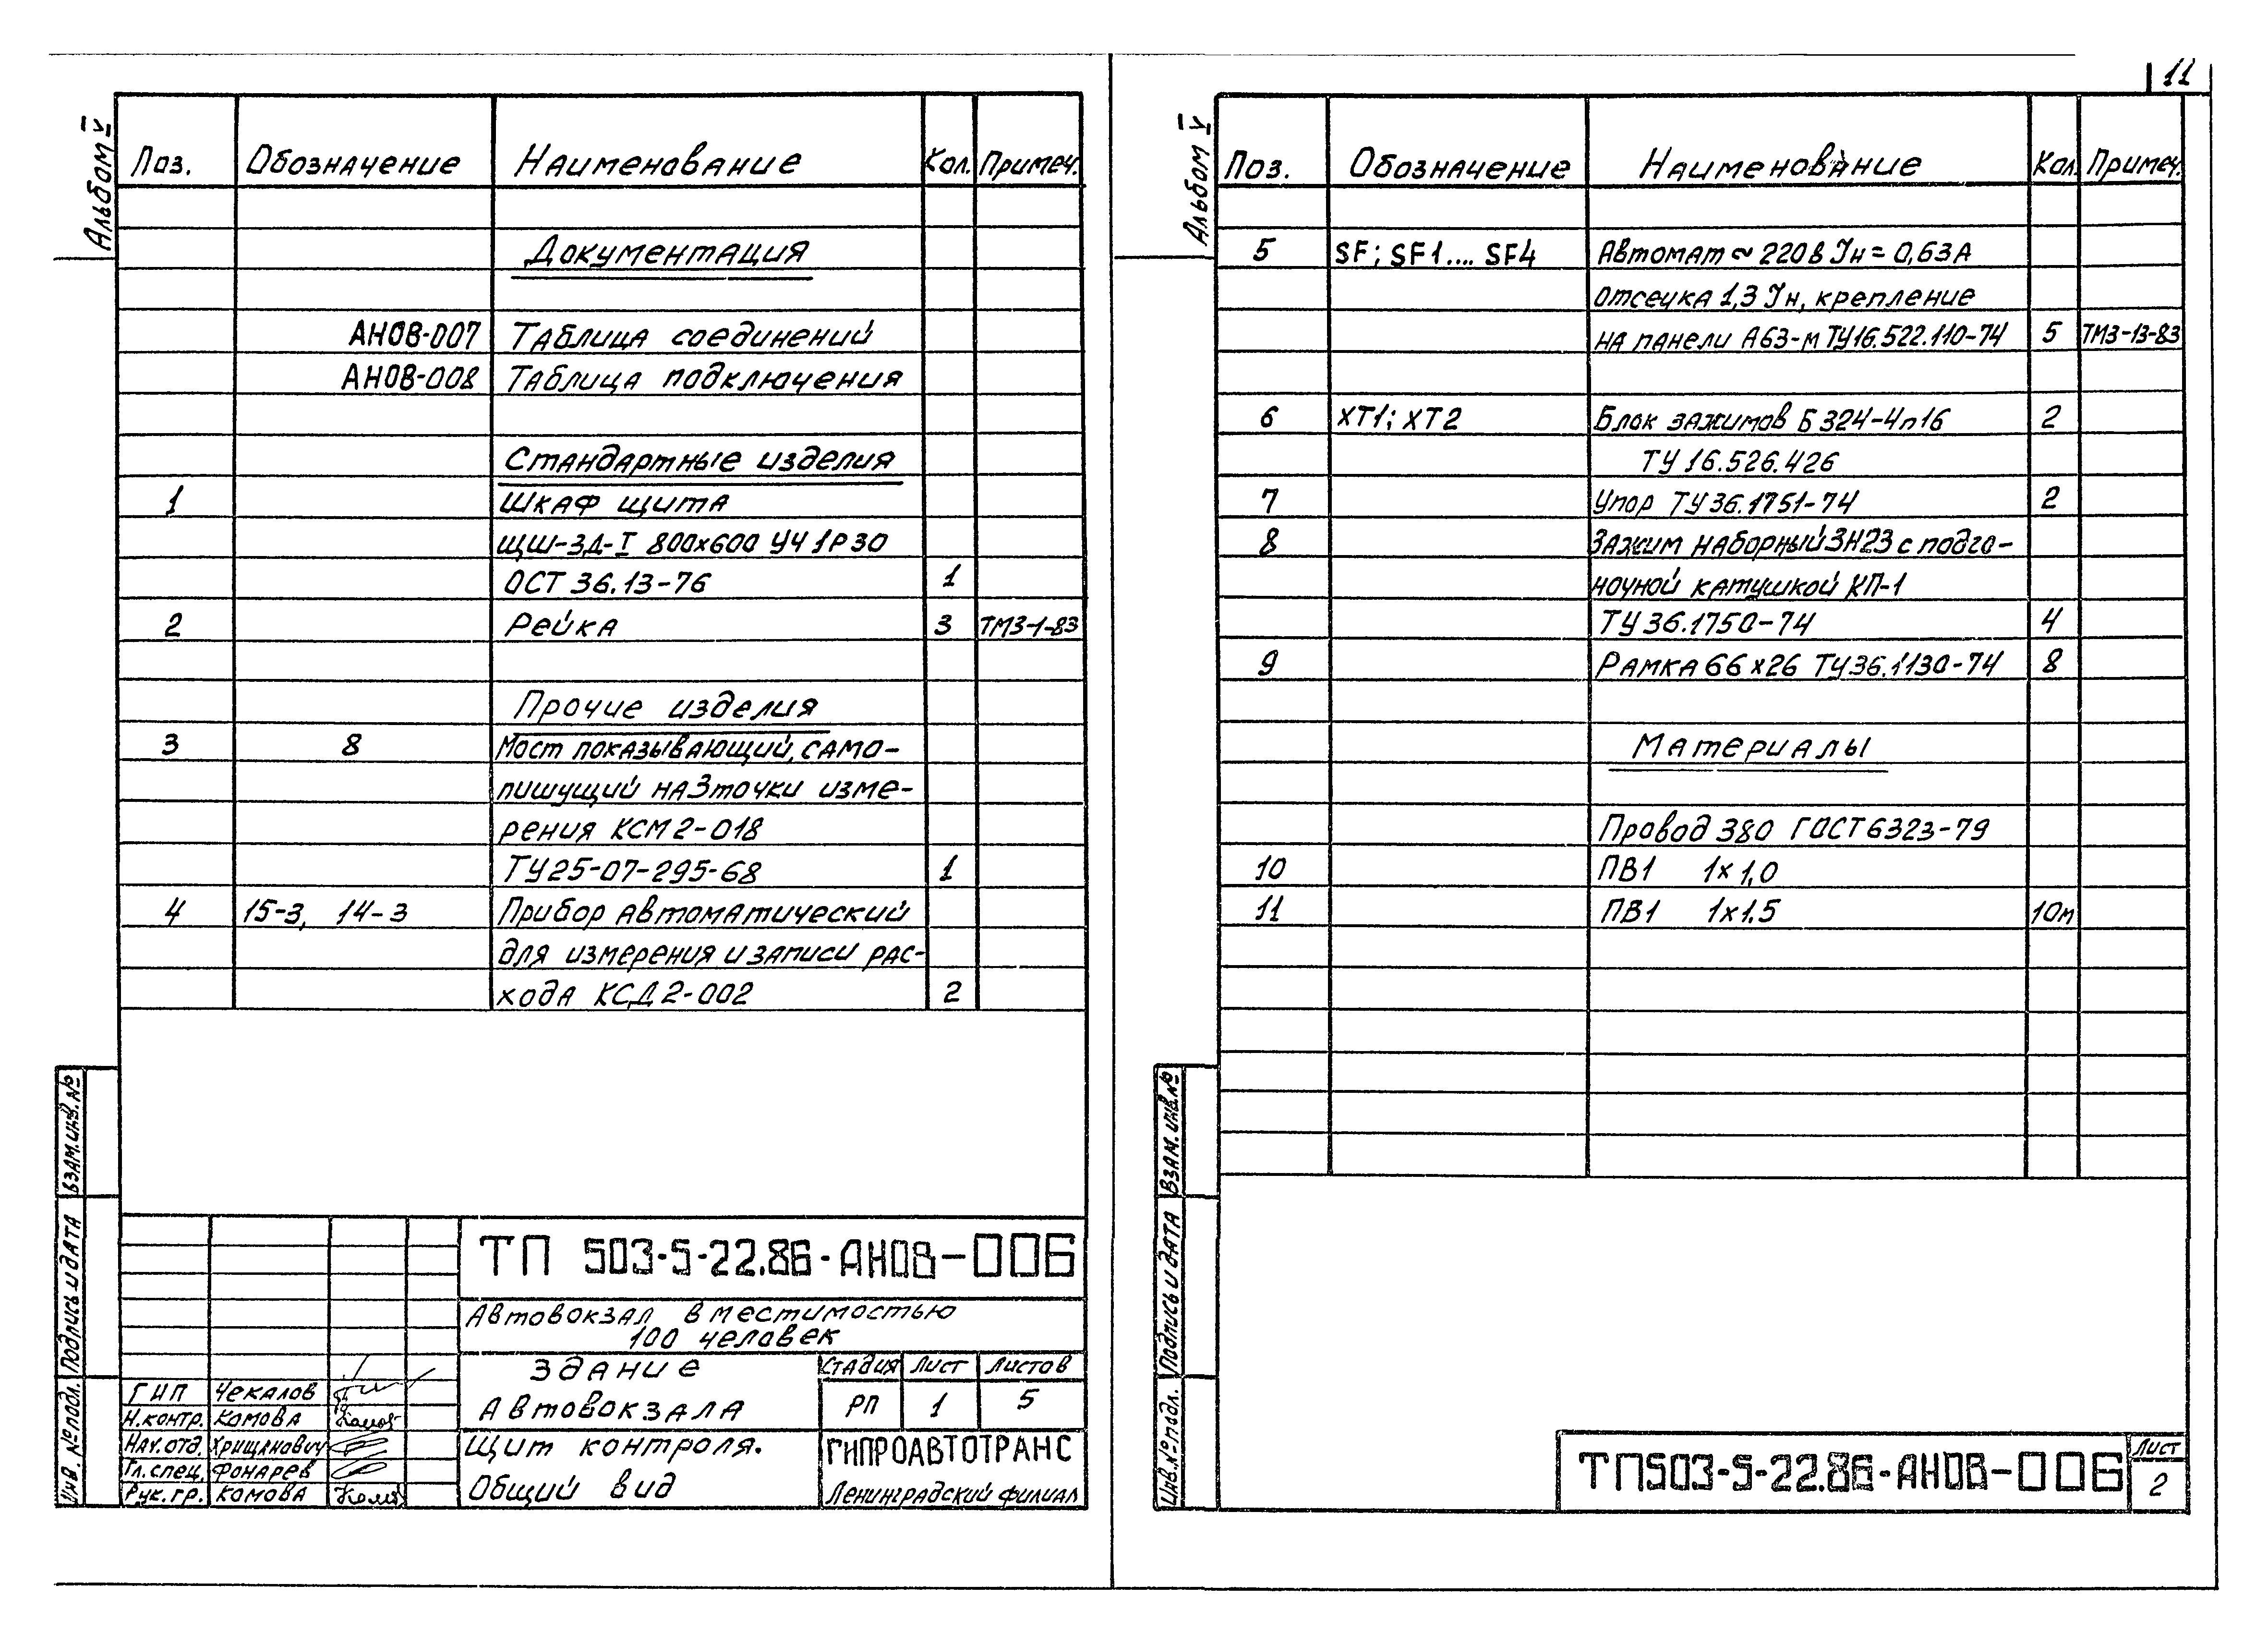 11
Альбом V
Поз. Обозначение Наименование Кол. Примеч.
Документация
АНОВ-007 Таблица соединений
АНОВ-008 Таблица подключения
Стандартные изделия
1 Шкаф щита
ЩШ-ЗД-I 800х600 У4 IР30
ОСТ 36.13-76 1
2 Рейка 3 ТМ3-1-83
Прочие изделия
3 8 Мост показывающий, само-
пишущий на 3 точки изме-
рения КСМ2-018
ТУ25-07-295-68 1
4 15-3, 14-3 Прибор автоматический
для измерения и записи рас-
хода КСД2-002 2
Взам. инв. №
Подпись и дата
Инв. № подл.
ТП 503-5-22.86-АНОВ-006
Автовокзал вместимостью
100 человек
Здание
Автовокзала
Стадия Лист Листов
РП 1 5
ГИП Чекалов
Н.контр. Комова
Нач.отд. Хрищанович
Гл.спец. Фонарев
Рук.гр. Комова
Щит контроля.
Общий вид
ГИПРОАВТОТРАНС
Ленинградский филиал
Альбом V
Поз. Обозначение Наименование Кол. Примеч.
5 SF; SF1.... SF4 Автомат ~ 220в Jн = 0,63А
отсечка 1,3 Jн, крепление
на панели А63-м ТУ16.522.110-74 5 ТМ3-13-83
6 ХТ1; ХТ2 Блок зажимов Б324-4п16 2
ТУ 16.526.426
7 Упор ТУ36.1751-74 2
8 Зажим наборный ЗН23 с подго-
ночной катушкой КП-1
ТУ36.1750-74 4
9 Рамка 66х26 ТУ36.1130-74 8
Материалы
Провод 380 ГОСТ 6323-79
10 ПВ1 1х1,0
11 ПВ1 1х1.5 10м
Взам. инв. №
Подпись и дата
Инв. № подл.
ТП503-5-22.86-АНОВ-006
Лист
2